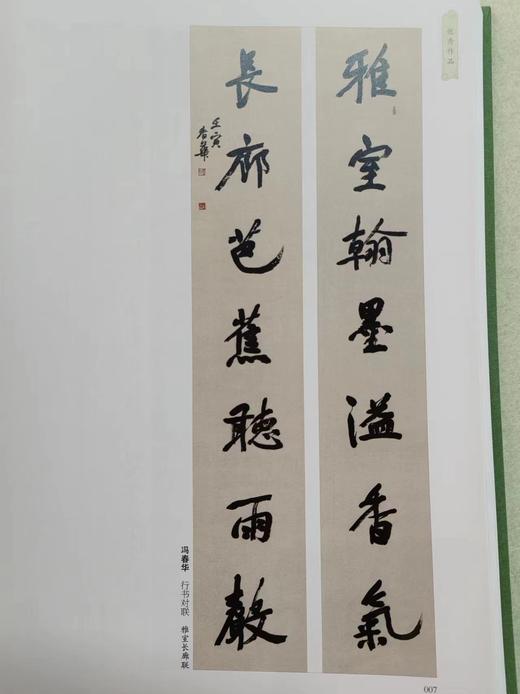 优秀作品
雅室翰墨溢香氣
長廊芭蕉聽雨聲
壬寅
春華
冯春华 行书对联 雅室长廊联
007